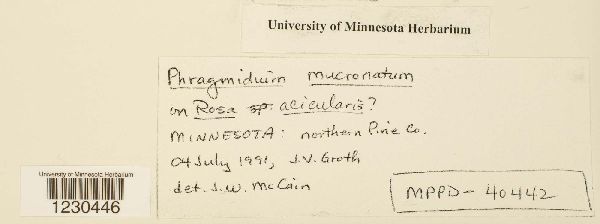 University of Minnesota Herbarium
Phragmidium mucronatum
on Rosa sp. acicularis?
MINNESOTA: northern Pine Co.
04 July 1991, J.V. Groth
det. J.W. McCain
MPPD-40442
University of Minnesota Herbarium
1230446